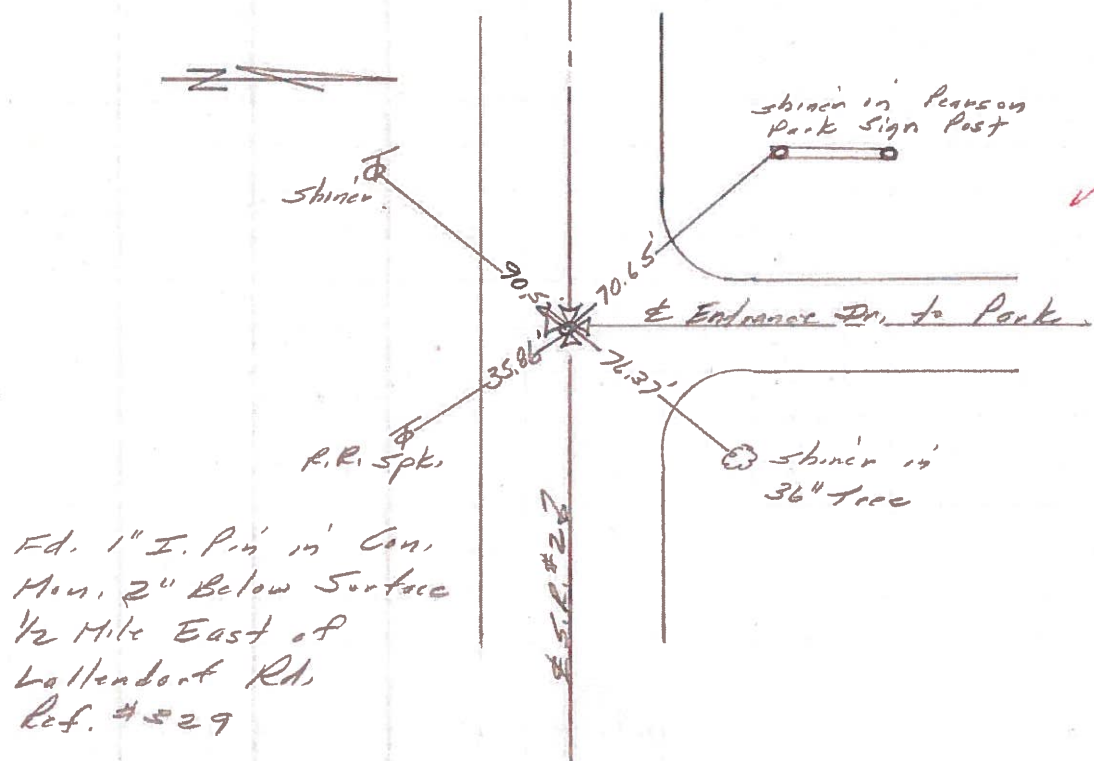 N
Shiner in Pearson
Park Sign Post
Shiner
90.52
70.65'
℄ Entrance Dr. to Park
35.86'
76.37'
R.R. Spk.
Shiner in
36" Tree
℄ S.R. #2
Fd. 1" I. Pin in Con.
Mon. 2" Below Surface
1/2 Mile East of
Lallendorf Rd.
Ref. #529